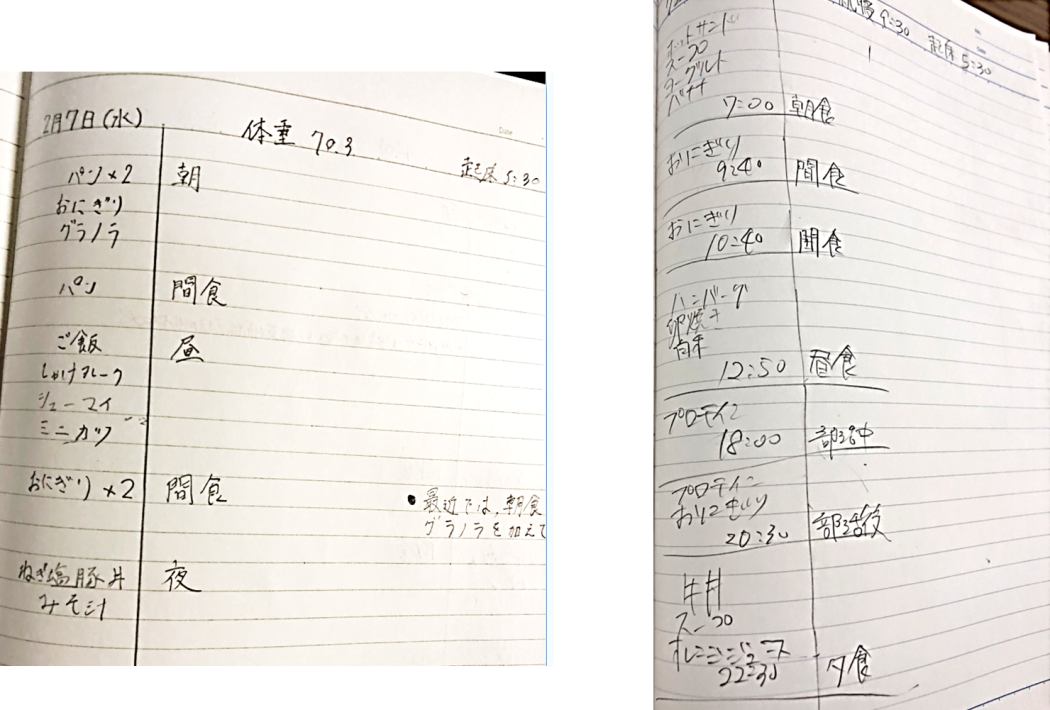 2月7日(水)
体重 70.3
起床 5:30
パン×2 朝
おにぎり
グラノラ
パン 間食
ご飯 昼
しゃけフレーク
シューマイ
ミニカツ
おにぎり×2 間食
● 最近では、朝食
グラノラを加えて
ねぎ塩豚丼 夜
みそ汁
9:30 起床 5:30
ホットサンド
スープ
ヨーグルト
バナナ
7:00 朝食
おにぎり
9:40 間食
おにぎり
10:40 間食
ハンバーグ
卵焼き
白米
12:50 昼食
プロテイン
18:00 部活中
プロテイン
おにぎり
20:30 部活後
スープ
オレンジジュース
22:30 夕食